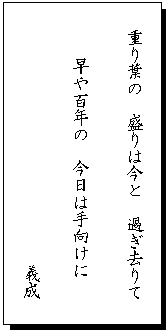 重り葉の　盛りは今と　過ぎ去りて
早や百年の　今日は手向けに
義成